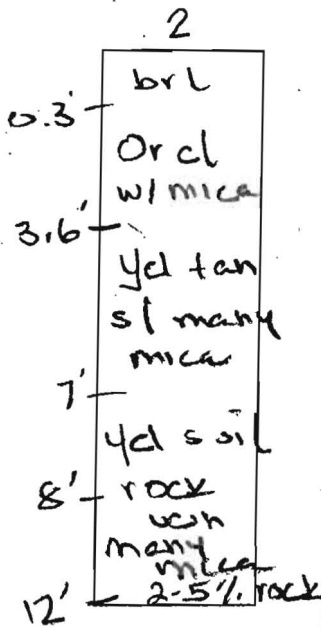 2
brl
0.3'
Or cl
w/ mica
3.6'
Yd tan
sl many
mica
7'
yd soil
8'
rock
vein
many
mica
2-5% rock
12'